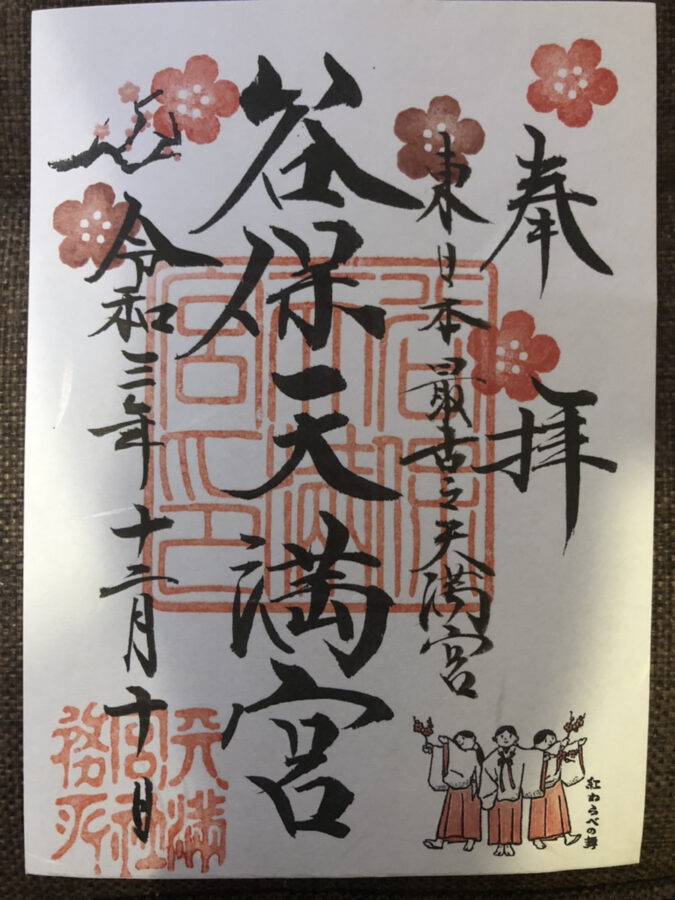 奉拝
東日本最古之天満宮
谷保天満宮
令和三年十二月十日
谷保天満宮之印
天満宮社務所
紅わらべの舞